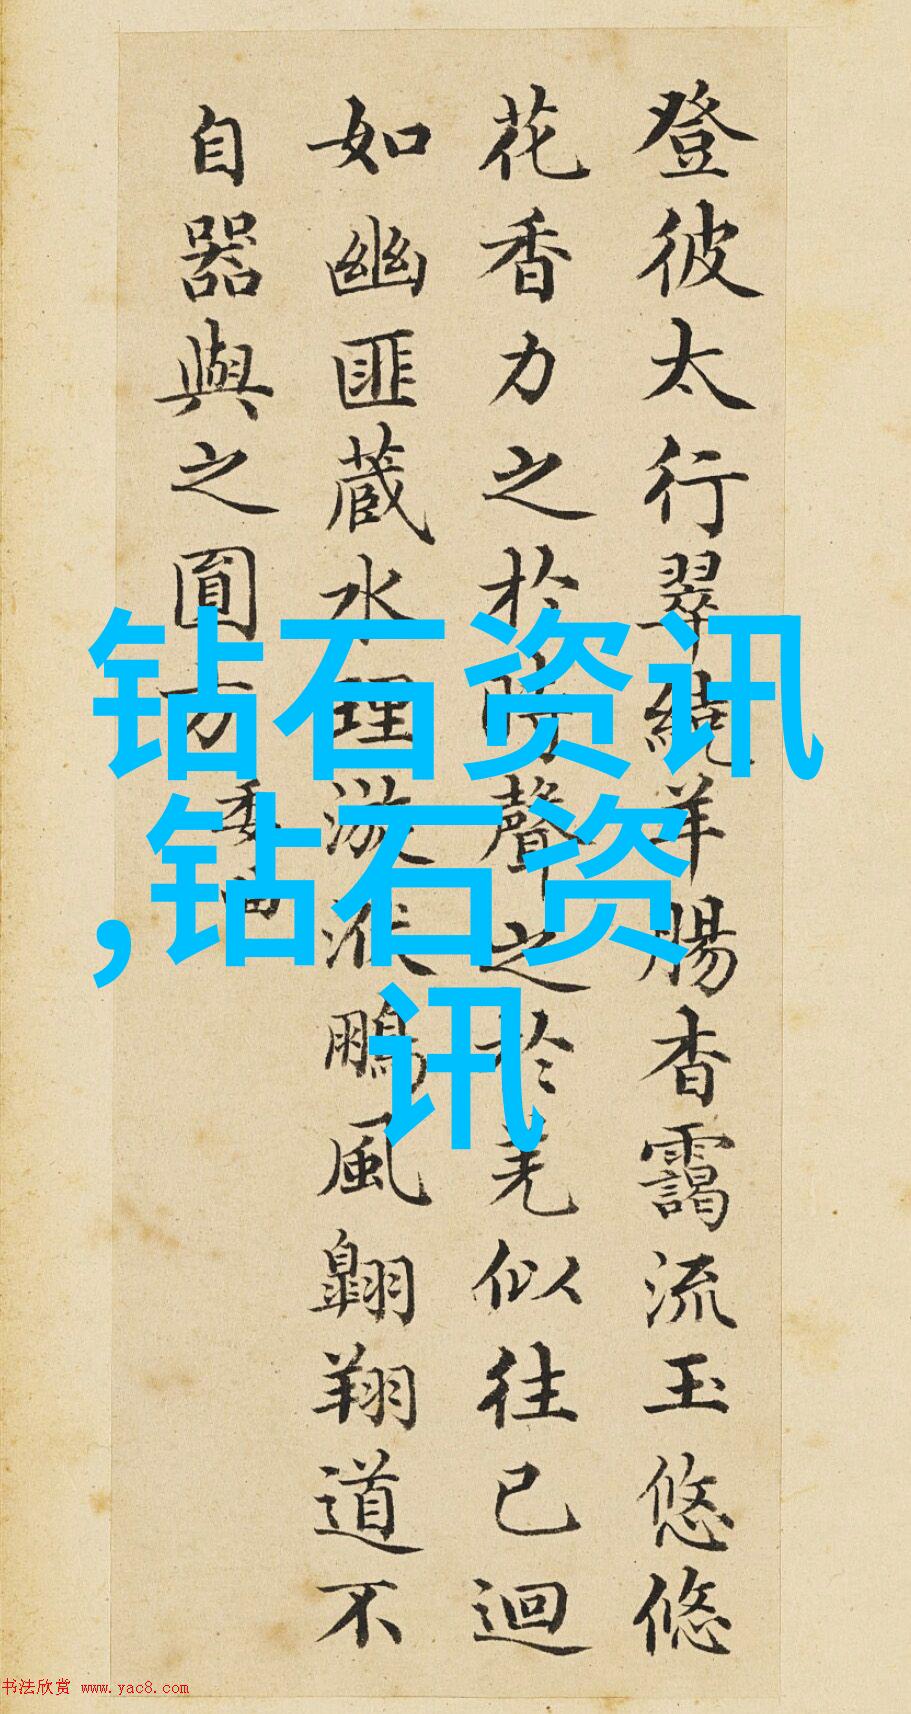 登彼太行翠繞羊腸杳靄流玉悠悠
花香力之於時聲之於羌似往已迴
如幽匪蔵水理漩洑鵬風翺翔道不
自器與之圓方委曲
钻石资讯
,钻石资
讯
书法欣赏 www.yac8.com